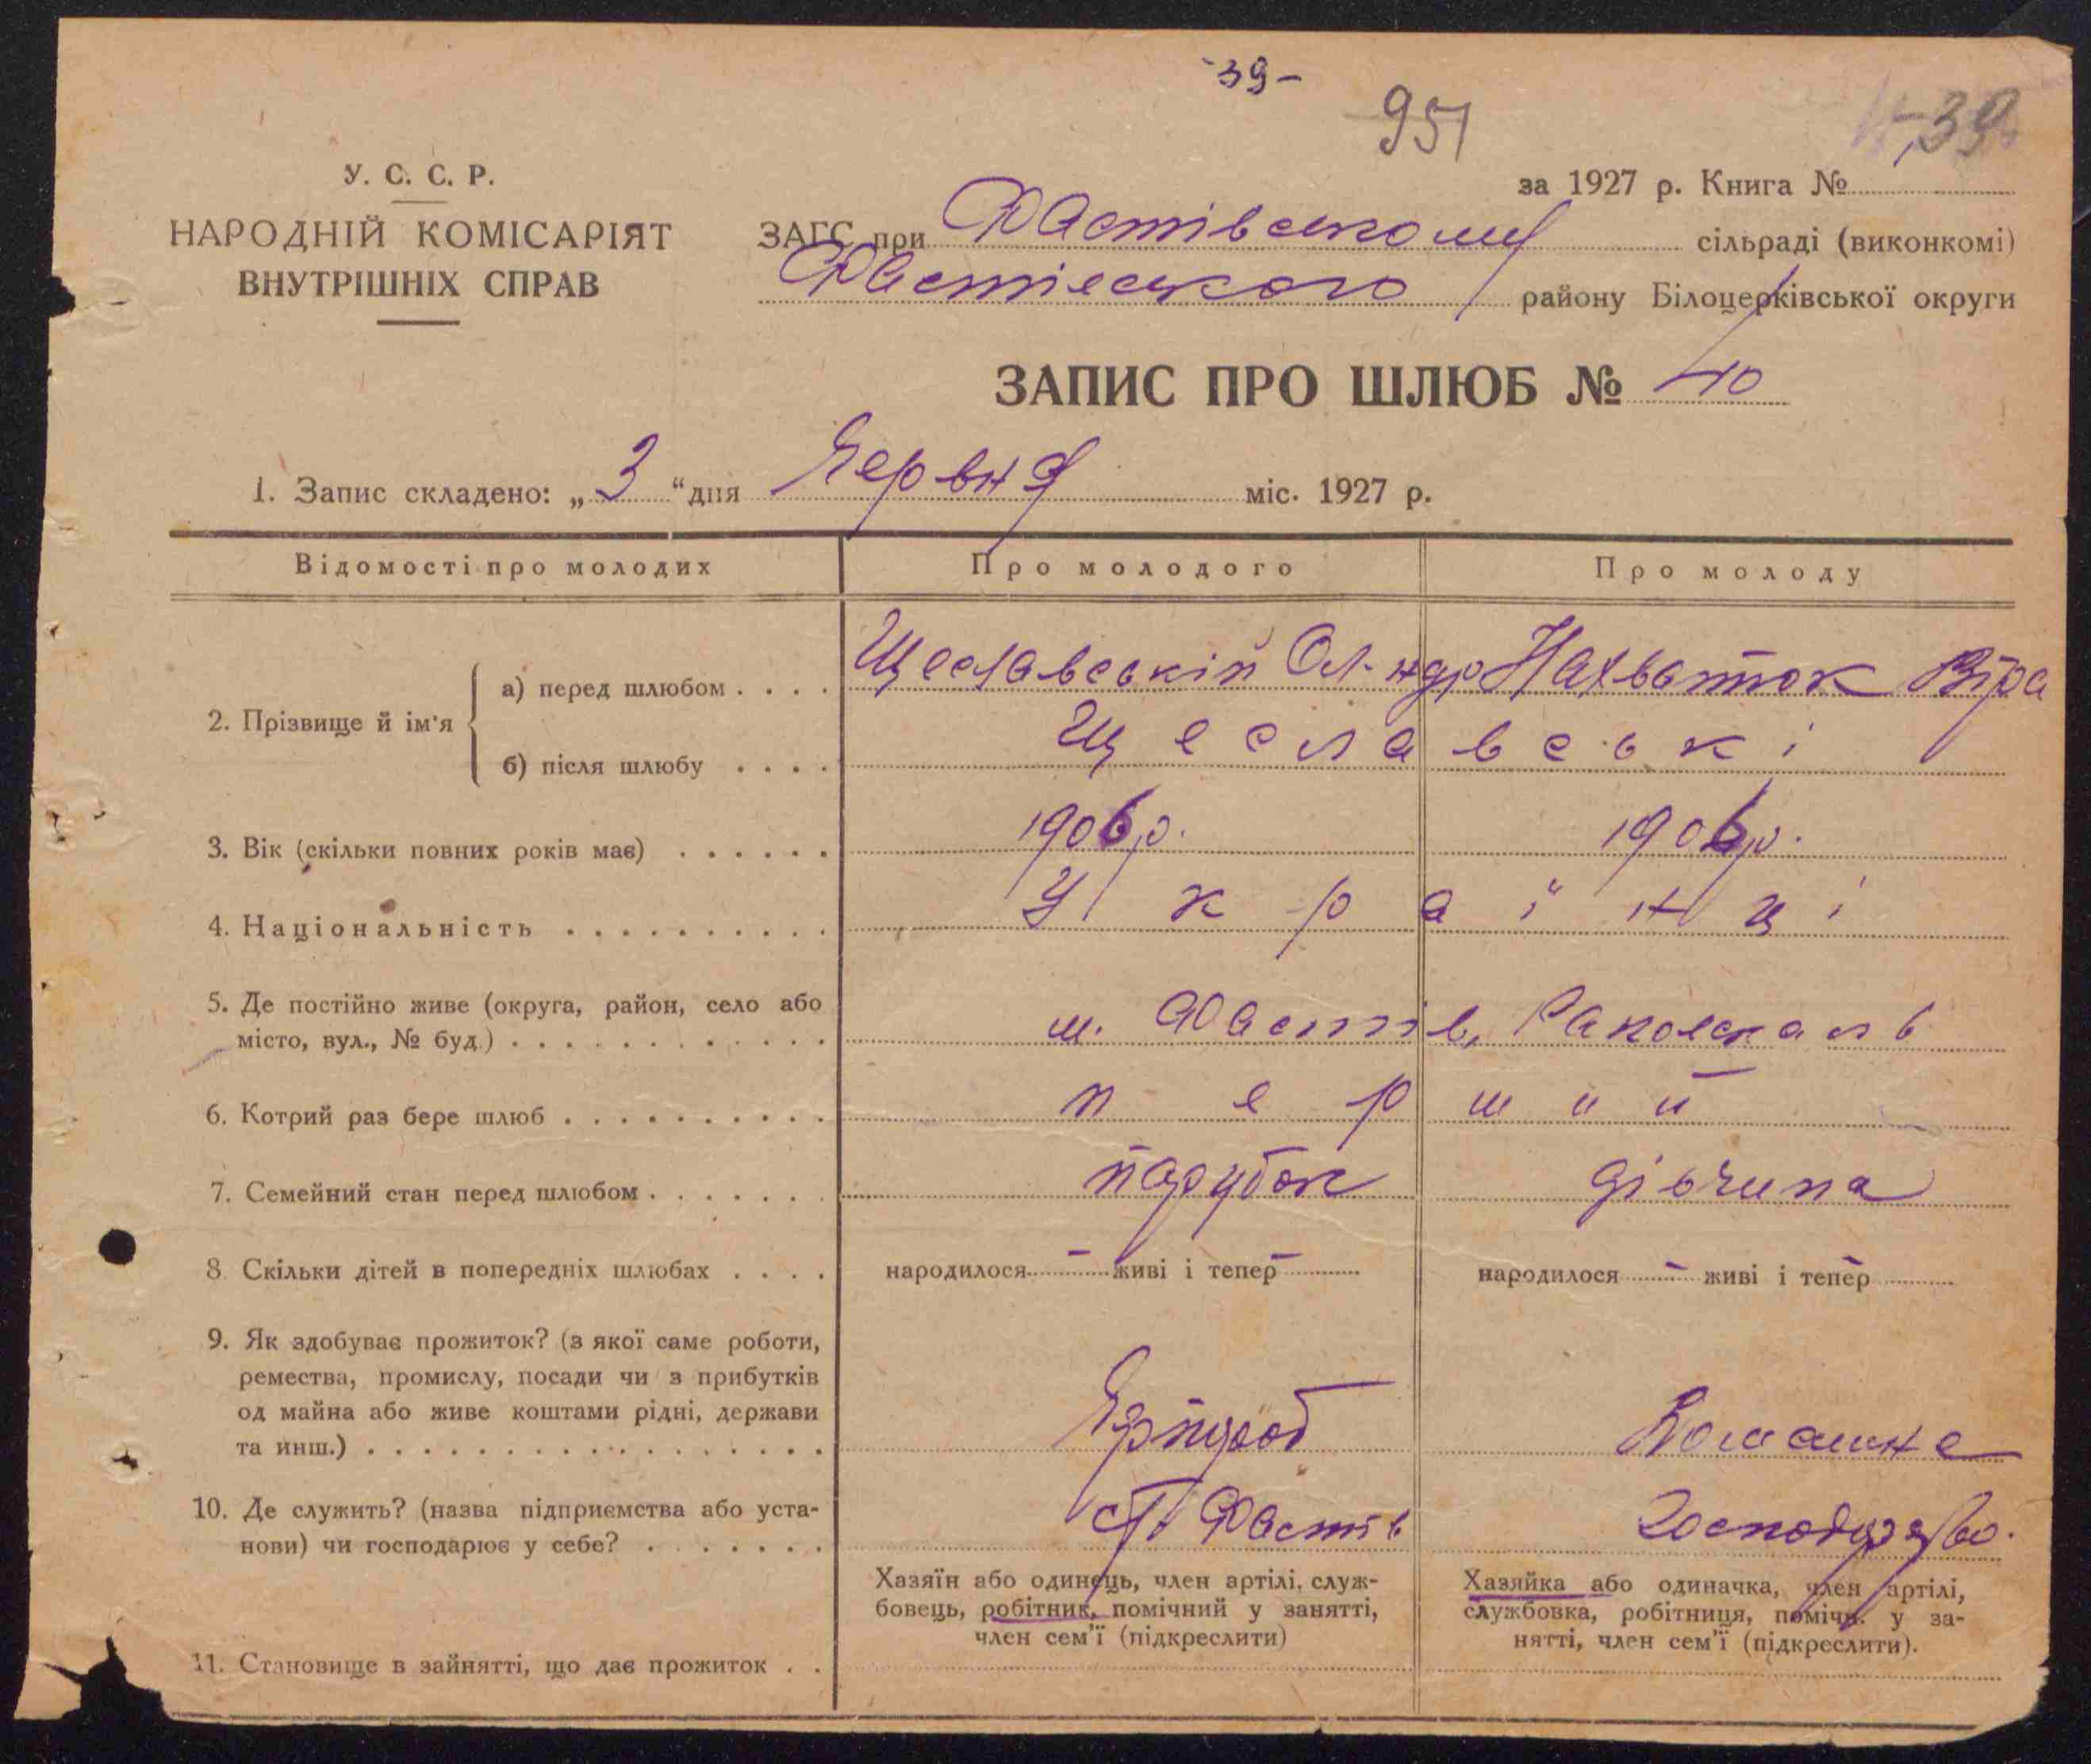 -39-
951
39
У. С. С. Р.
НАРОДНІЙ КОМІСАРІЯТ
ВНУТРІШНІХ СПРАВ
за 1927 р. Книга №
ЗАГС при Фастівському сільраді (виконкомі)
Фастівського району Білоцерківської округи
ЗАПИС ПРО ШЛЮБ № 40
1. Запис складено: „ 3 “ дня Червня міс. 1927 р.
Відомості про молодих Про молодого Про молоду
2. Прізвище й ім'я
а) перед шлюбом . . . . Щеславській Ол-ндр Нахваток Віра
б) після шлюбу . . . . Щеславські
3. Вік (скільки повних років має) . . . . . . 1906 р. 1906 р.
4. Національність . . . . . . . . . . Українці
5. Де постійно живе (округа, район, село або
місто, вул., № буд.) . . . . . . . . . . . . м. Фастів,
6. Котрий раз бере шлюб . . . . . . . . . . перший
7. Семейний стан перед шлюбом . . . . . . . парубок дівчина
8. Скільки дітей в попередніх шлюбах . . . . народилося - живі і тепер - народилося - живі і тепер -
9. Як здобуває прожиток? (з якої саме роботи,
ремества, промислу, посади чи з прибутків
од майна або живе коштами рідні, держави
та инш.) . . . . . . . . . . . . . . . . . Домашне
10. Де служить? (назва підприємства або уста-
нови) чи господарює у себе? . . . . . . . ст. Фастів Господарство.
Хазяїн або одинець, член артілі, служ-
бовець, робітник, помічний у занятті,
член сем'ї (підкреслити)
Хазяйка або одиначка, член артілі,
службовка, робітниця, помічн. у за-
нятті, член сем'ї (підкреслити).
11. Становище в зайнятті, що дає прожиток . .